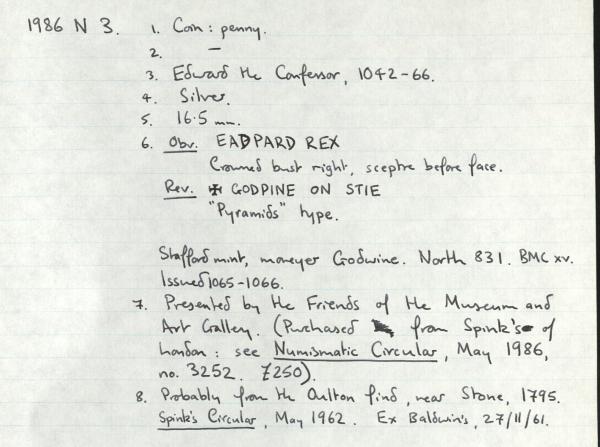 1986 N 3. 1. Coin: penny.
2. —
3. Edward the Confessor, 1042-66.
4. Silver.
5. 16.5 mm.
6. Obv. EADPARD REX
Crowned bust right, sceptre before face.
Rev. ✠ GODPINE ON STIE
"Pyramids" type.
Stafford mint, moneyer Godwine. North 831. BMC xv.
Issued 1065-1066.
7. Presented by the Friends of the Museum and
Art Gallery. (Purchased from Spink's of
London: see Numismatic Circular, May 1986,
no. 3252. £250).
8. Probably from the Oulton find, near Stone, 1795.
Spink's Circular, May 1962. Ex Baldwin's, 27/11/61.